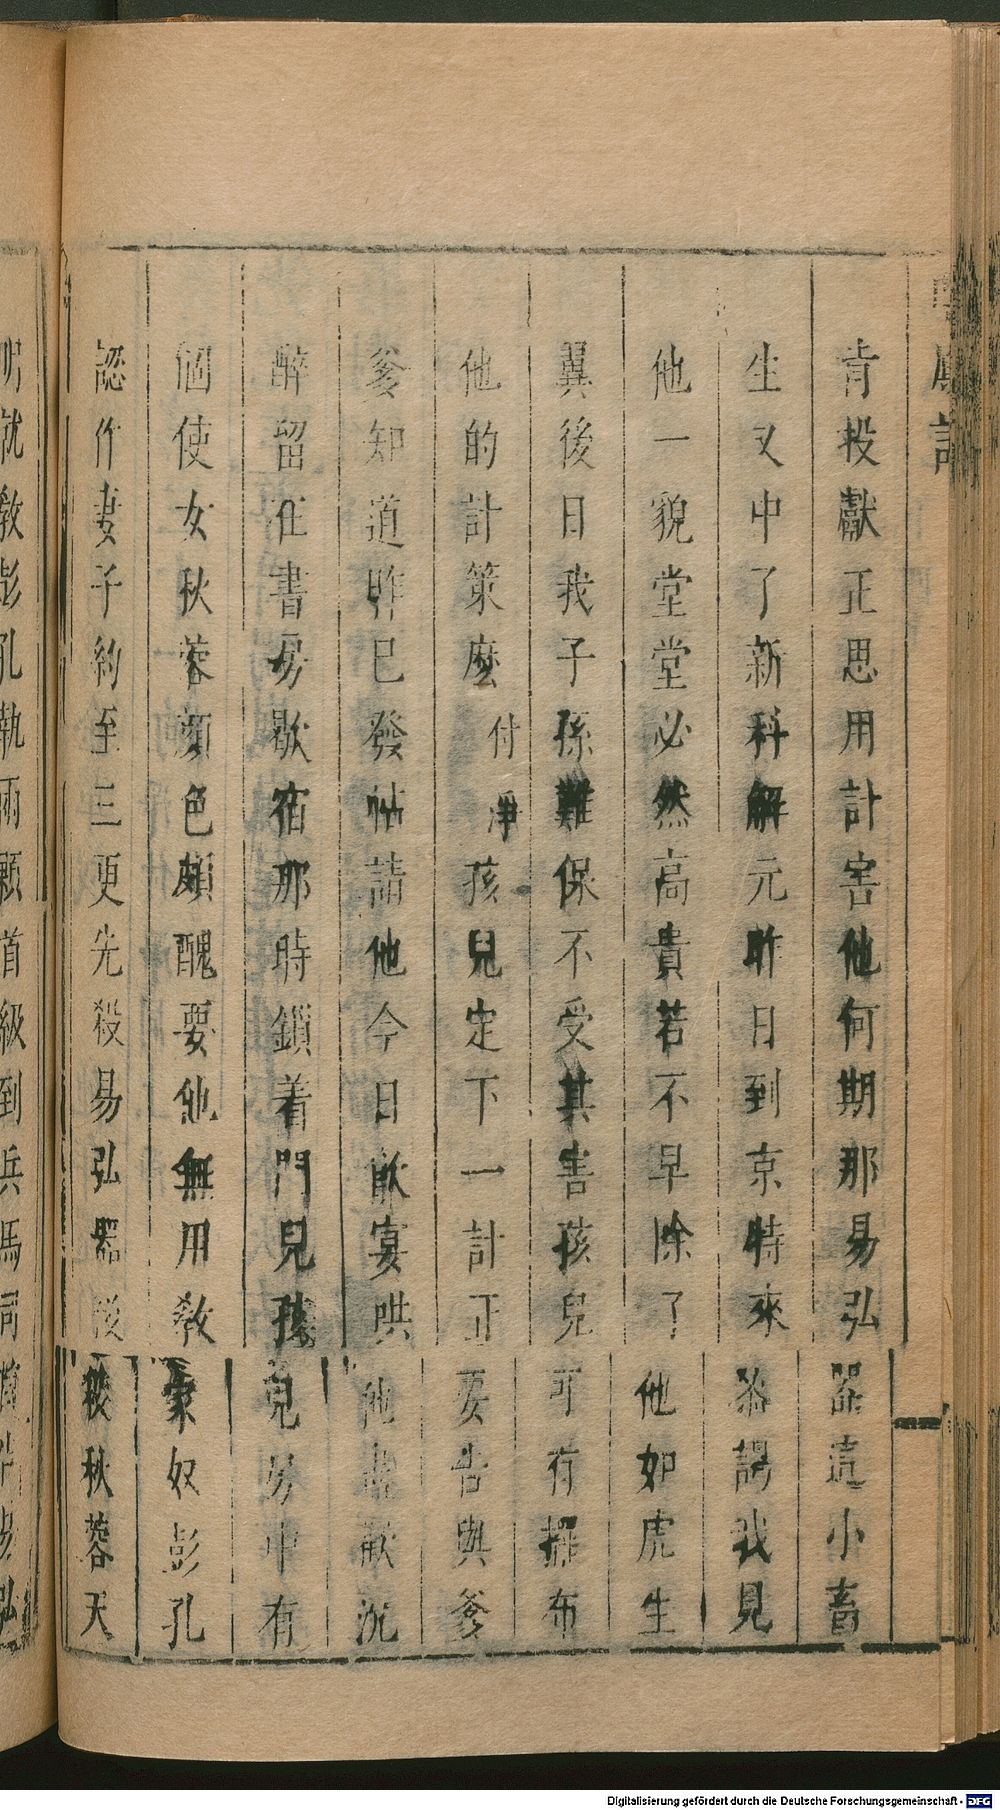 肯投獻正思用計害他何期那易弘器這小畜
生又中了新科解元昨日到京特來參謁我見
他一貌堂堂必然高貴若不早除了他如虎生
翼後日我子孫難保不受其害孩兒可有擺布
他的計策麽付淨孩兒定下一計正要告與爹
爹知道昨已發帖請他今日飲宴哄他盡歡沉
醉留在書房歇宿那時鎖着門兒孩兒房中有
個使女秋蓉顏色頗醜要他無用敎豪奴彭孔
認作妻子約至三更先殺易弘器後殺秋蓉天
明就敎彭孔執兩顆首級到兵馬司
Digitalisierung gefördert durch die Deutsche Forschungsgemeinschaft - DFG